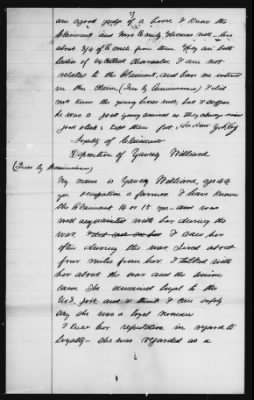 7
am a good judge of a horse. I knew the
Claimant and Mrs Emily Thomas not
about 3/4 of a mile from them They are both
ladies of excellent character I am not
related to the Claimant, and have no interest
in this claim (Ques by Commissioner) I did
not know the young horse well, but I suppose
he was a good young animal as they always raise
good stock & kept them fat,
Loyalty of Claimant
Deposition of Yancy Williard
(Ques by Commissioner)
My name is Yancy Williard, age 44
yrs occupation a farmer I have known
the Claimant 16 or 18 yrs and was
well acquainted with her during the
war, I saw her
often during the war lived about
four miles from her. I talked with
her about the war and the Union
cause She remained loyal to the
U.S. Govt and I think I can safely
say she was a loyal woman
I knew her reputation in regard to
loyalty. She was regarded as a